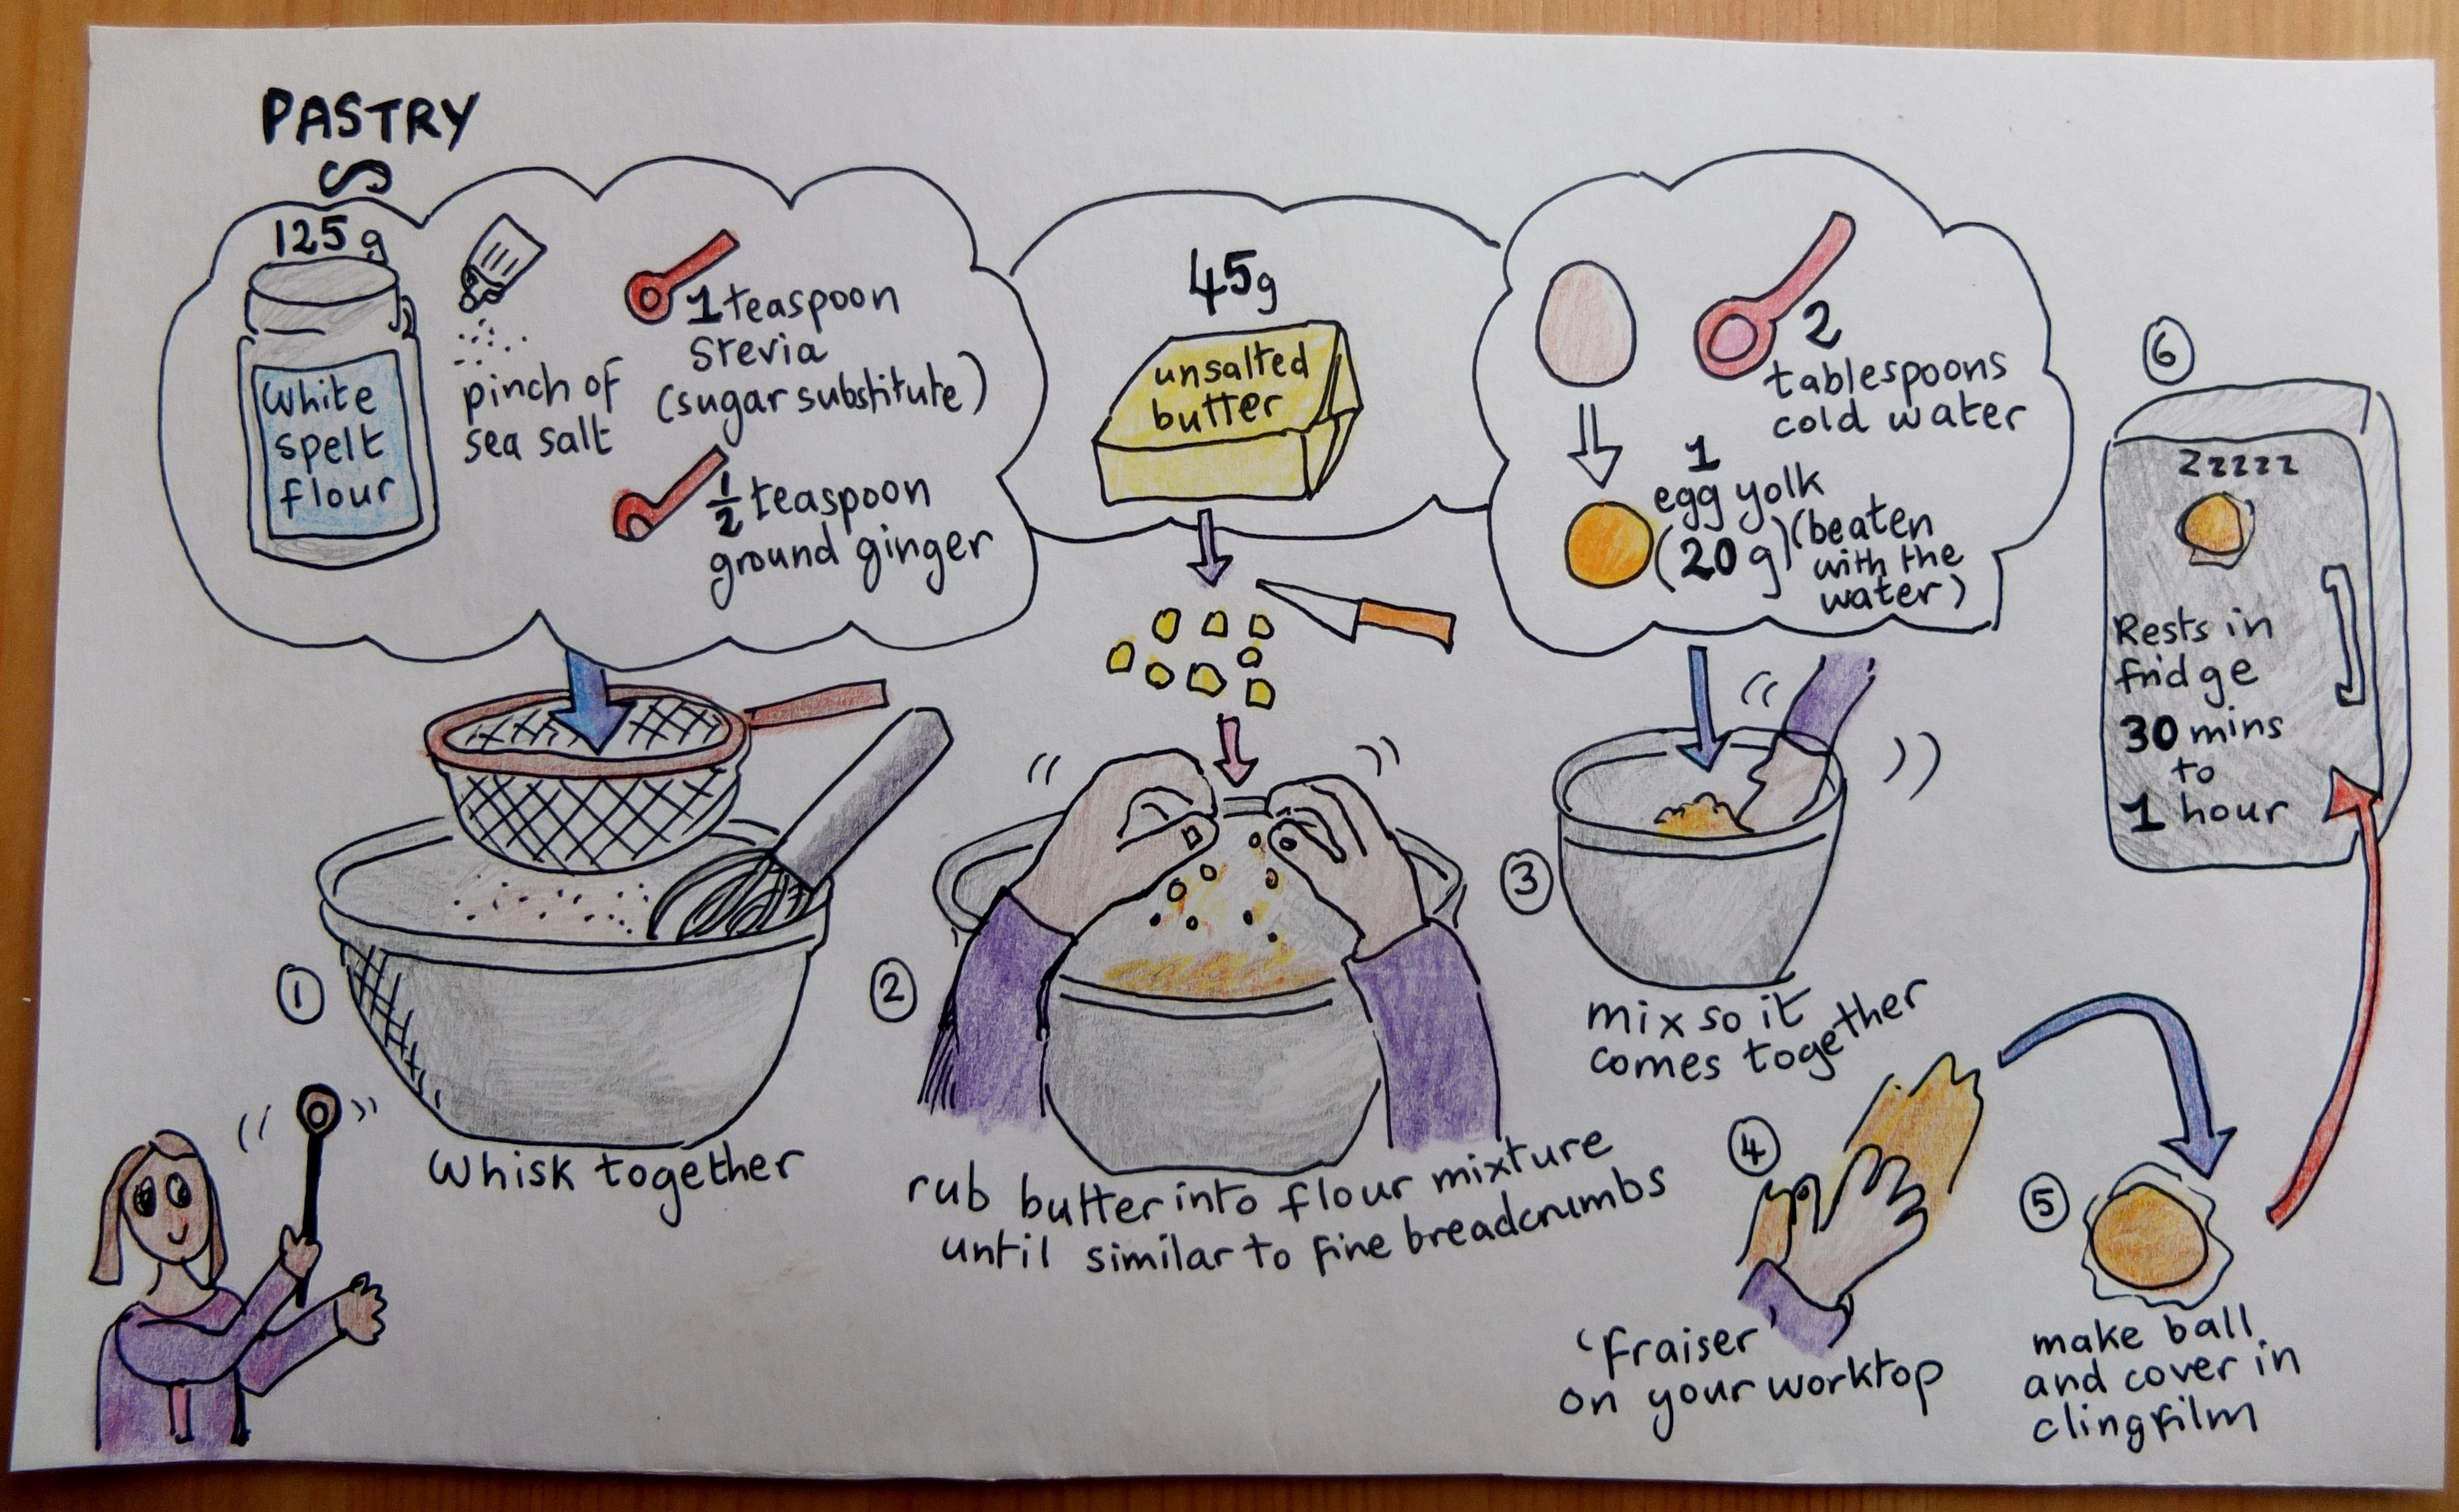 PASTRY
125g
White
spelt
flour
pinch of
sea salt
1 teaspoon
Stevia
(sugar substitute)
1/2 teaspoon
ground ginger
45g
unsalted
butter
2
tablespoons
cold water
1
egg yolk
(20g) (beaten
with the
water)
1
Whisk together
2
rub butter into flour mixture
until similar to fine breadcrumbs
3
mix so it
comes together
4
'fraiser'
on your worktop
5
make ball
and cover in
clingfilm
6
zzzzz
Rests in
fridge
30 mins
to
1 hour